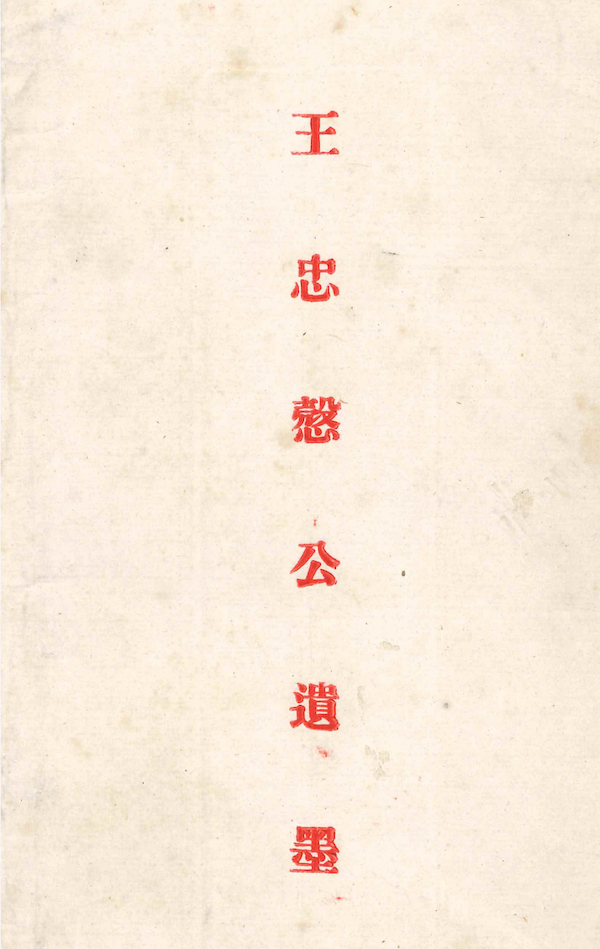 王忠慤公遺墨